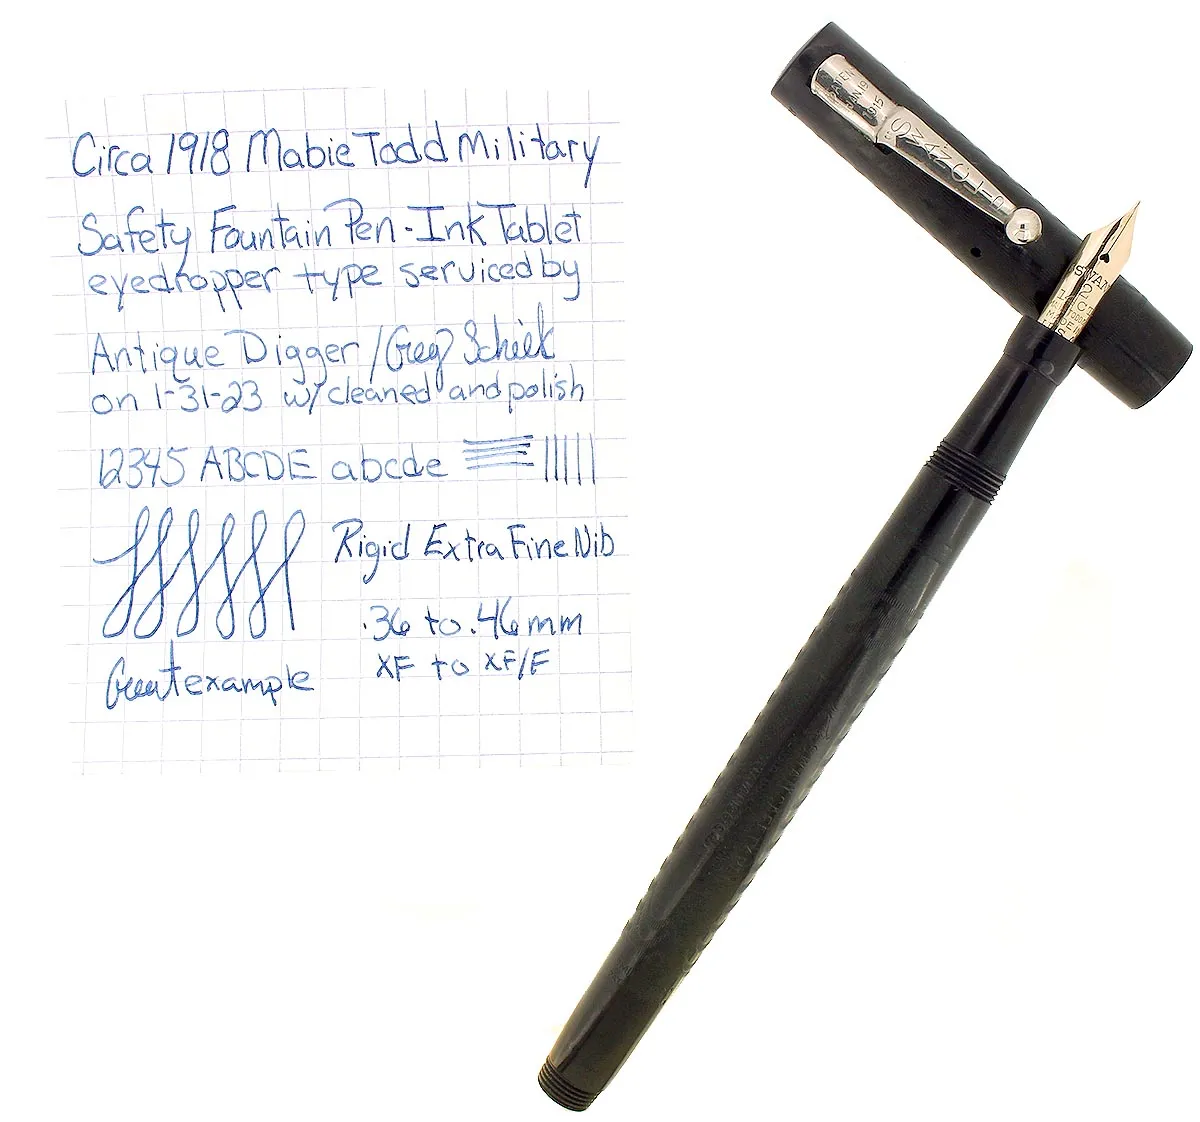 Circa 1918 Mabie Todd Military
Safety Fountain Pen - Ink Tablet
eyedropper type serviced by
Antique Digger / Greg
on 1-31-23 w/ cleaned and polish
12345 ABCDE abcde
Rigid Extra Fine Nib
.36 to .46 mm
XF to XF/F
example
JUN 19
1915
SWAN CLIP
SWAN
2
14 CT